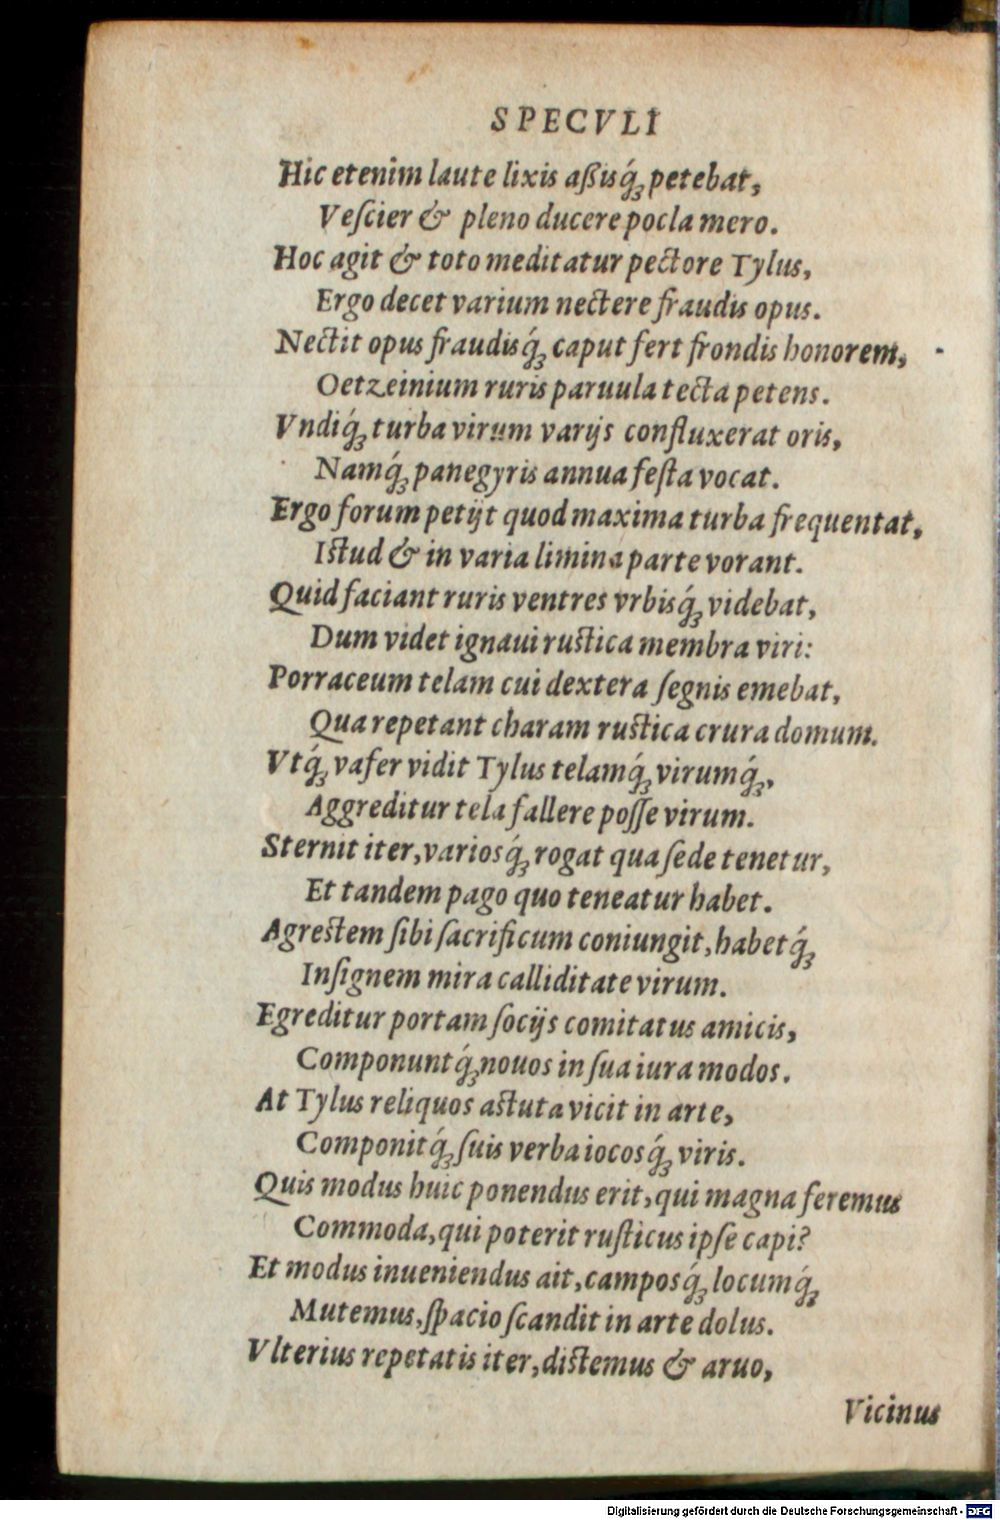 SPECVLI
Hic etenim laute lixis aßisq́ꝫ petebat,
Veſcier & pleno ducere pocla mero.
Hoc agit & toto meditatur pectore Tylus,
Ergo decet varium nectere fraudis opus.
Nectit opus fraudisq́ꝫ caput fert frondis honorem,
Oetzeinium ruris paruula tecta petens.
Vndiq́ꝫ turba virum varijs confluxerat oris,
Namq́ꝫ panegyris annua feſta vocat.
Ergo forum petijt quod maxima turba frequentat,
Iſtud & in varia limina parte vorant.
Quid faciant ruris ventres vrbisq́ꝫ videbat,
Dum videt ignaui ruſtica membra viri:
Porraceum telam cui dextera ſegnis emebat,
Qua repetant charam ruſtica crura domum.
Vtq́ꝫ vafer vidit Tylus telamq́ꝫ virumq́ꝫ,
Aggreditur tela fallere poſſe virum.
Sternit iter, variosq́ꝫ rogat qua ſede tenetur,
Et tandem pago quo teneatur habet.
Agreſtem ſibi ſacrificum coniungit, habetq́ꝫ
Inſignem mira calliditate virum.
Egreditur portam ſocijs comitatus amicis,
Componuntq́ꝫ nouos in ſua iura modos.
At Tylus reliquos aſtuta vicit in arte,
Componitq́ꝫ ſuis verba iocosq́ꝫ viris.
Quis modus huic ponendus erit, qui magna feremus
Commoda, qui poterit ruſticus ipſe capi?
Et modus inueniendus ait, camposq́ꝫ locumq́ꝫ
Mutemus, ſpacio ſcandit in arte dolus.
Vlterius repetatis iter, diſtemus & aruo,
Vicinus
Digitalisierung gefördert durch die Deutsche Forschungsgemeinschaft - DFG